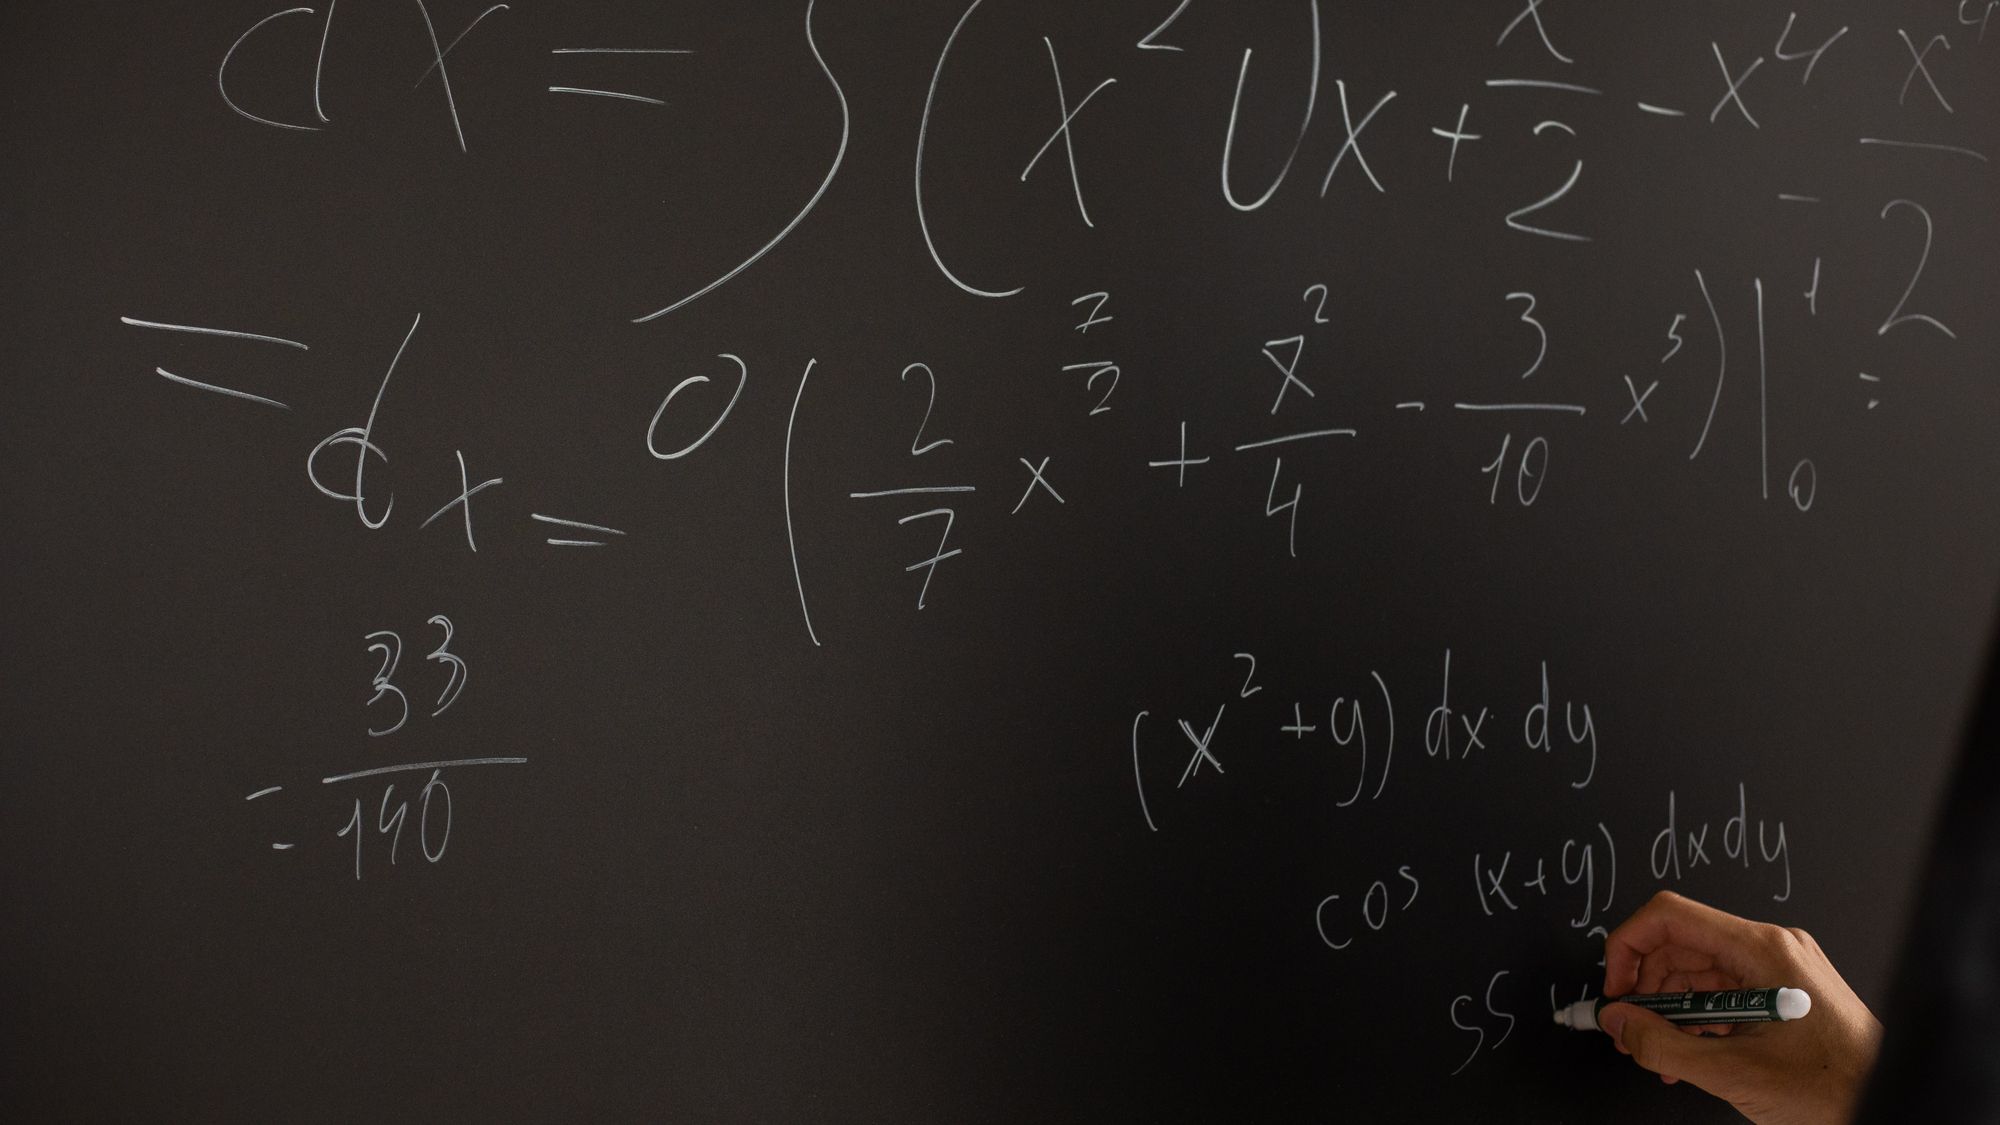 dx = ∫ (x² √x + x/2 - x⁴ - x⁴/2
= dx = 0 (2/7 x^7/2 + x²/4 - 3/10 x⁵)|¹₀ =
= 33/140
(x² + y) dx dy
cos (x+y) dxdy
SS